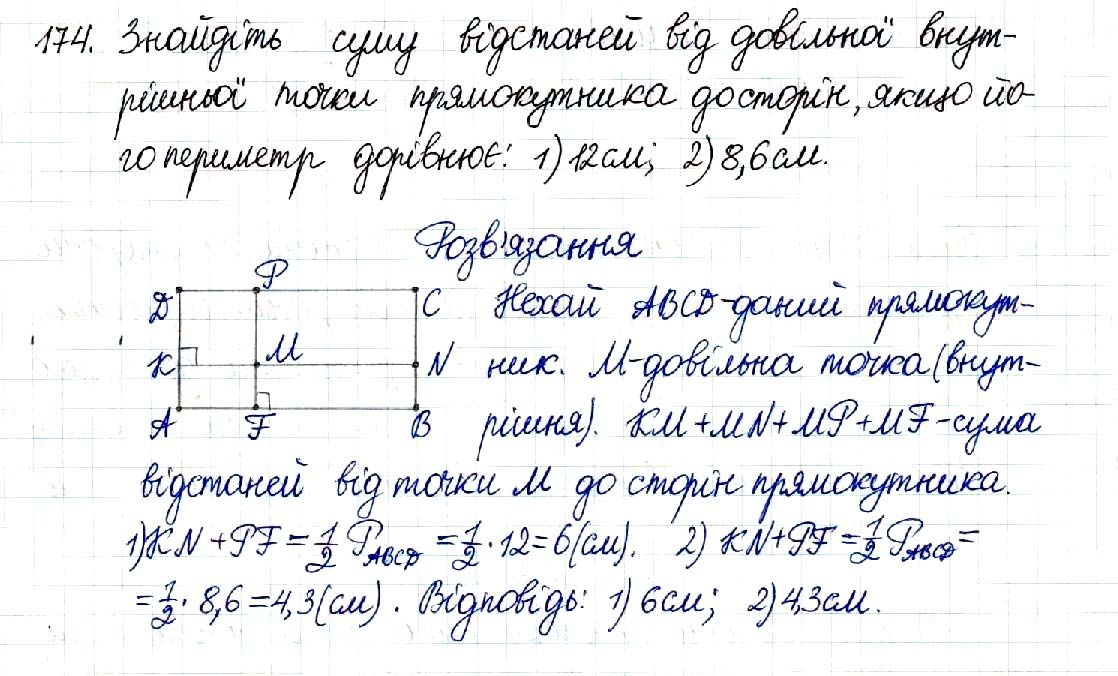 174. Знайдіть суму відстаней від довільної внут-
рішньої точки прямокутника до сторін, якщо йо-
го периметр дорівнює: 1) 12 см; 2) 8,6 см.
Розв'язання
D P C
K M N
A F B
Нехай ABCD - даний прямокут-
ник. M - довільна точка (внут-
рішня). KM + MN + MP + MF - сума
відстаней від точки M до сторін прямокутника.
1) KN + PF = 1/2 P_ABCD = 1/2 · 12 = 6 (см). 2) KN + PF = 1/2 P_ABCD =
= 1/2 · 8,6 = 4,3 (см). Відповідь: 1) 6 см; 2) 4,3 см.